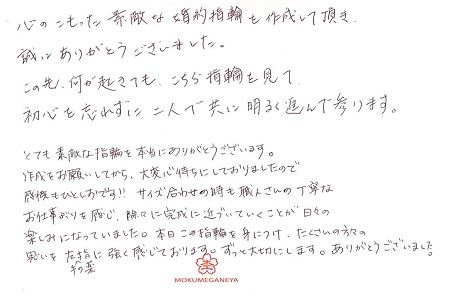 心のこもった素敵な婚約指輪を作成して頂き
誠にありがとうございました。
この先、何が起きても、こちら指輪を見て
初心を忘れずに二人で共に明るく進んで参ります。
とても素敵な指輪を本当にありがとうございます。
作成をお願いしてから、大変心待ちにしておりましたので
感慨もひとしおです!! サイズ合わせの時も職人さんの丁寧な
お仕事ぶりを感じ、除々に完成に近づいていくことが日々の
楽しみになっていました。本日この指輪を身につけ、たくさんの方々の
思いを左指に強く感じております。ずっと大切にします。ありがとうございました
MOKUMEGANEYA